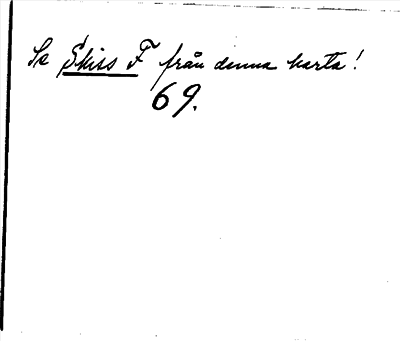 Se Skiss F från denna karta!
69.